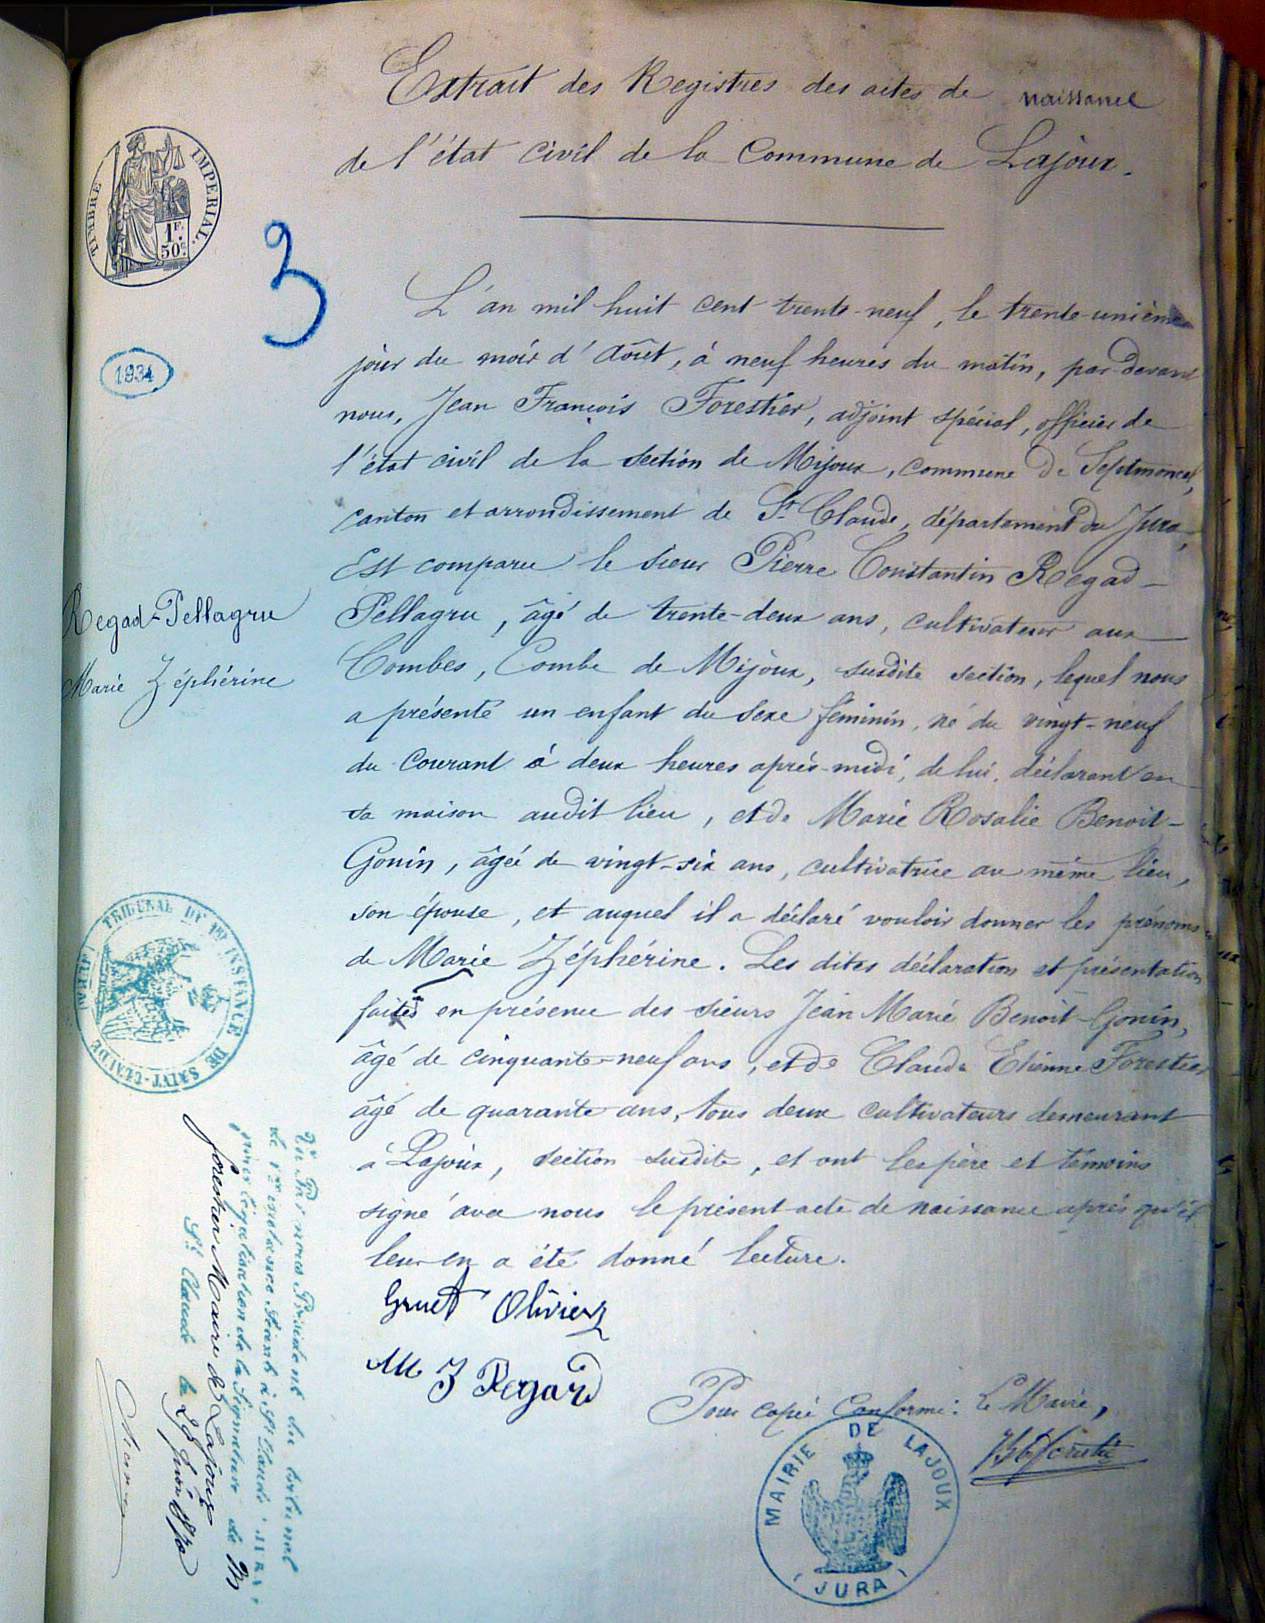 Extrait des Registres des actes de naissance
de l'état civil de la Commune de Lajoux.
TIMBRE IMPERIAL
1F.
50c.
3
1934
L'an mil huit cent trente-neuf, le trente-unième
jour du mois d'Août, à neuf heures du matin, par-devant
nous, Jean François Forestier, adjoint spécial, officier de
l'état civil de la section de Mijoux, commune de Septmoncel,
canton et arrondissement de St Claude, département du Jura,
Est comparu le sieur Pierre Constantin Regad-
Pellagru, âgé de trente-deux ans, cultivateur aux
Combes, Combe de Mijoux, susdite section, lequel nous
a présenté un enfant du sexe féminin, né du vingt-neuf
du courant à deux heures après-midi, de lui, déclarant en
sa maison audit lieu, et de Marie Rosalie Benoit-
Gonin, âgée de vingt-six ans, cultivatrice au même lieu,
son épouse, et auquel il a déclaré vouloir donner les prénoms
de Marie Zéphérine. Les dites déclaration et présentation
faites en présence des sieurs Jean Marie Benoit-Gonin,
âgé de cinquante-neuf ans, et de Claude Etienne Forestier
âgé de quarante ans, tous deux cultivateurs demeurant
à Lajoux, section susdite, et ont les père et témoins
signé avec nous le présent acte de naissance après qu'il
leur en a été donné lecture.
Regad-Pellagru
Marie Zéphérine
Gruet Olivier
M Z Regard
Pour copie Conforme: Le Maire,
MAIRIE DE LAJOUX
JURA
TRIBUNAL DE 1re INSTANCE DE SAINT-CLAUDE
(JURA)
Vu Par nous Président du tribunal
de 1re instance séant à St Claude, JURA,
pour légalisation de la signature de M
forestier Maire de Lajoux
St Claude le